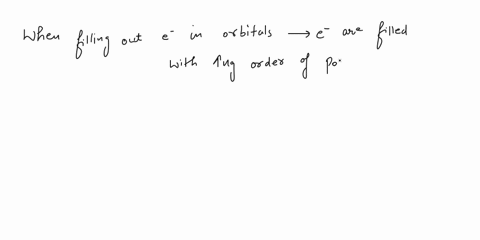 When filling out e⁻ in orbitals → e⁻ are filled
with ↑ng order of po